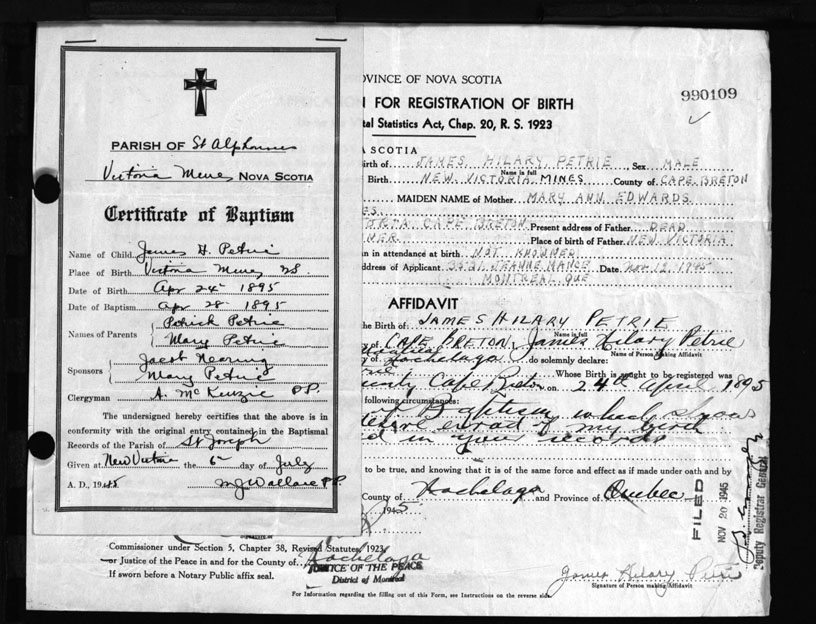 PARISH OF St Alphonsus
Victoria Mines NOVA SCOTIA
Certificate of Baptism
Name of Child James H. Petrie
Place of Birth Victoria Mines NS.
Date of Birth Apr 24th 1895
Date of Baptism Apr 28th 1895
Names of Parents
Petrie
Mary Petrie
Sponsors
Jacob Nearing
Mary Petrie
Clergyman A. McKenzie P.P.
The undersigned hereby certifies that the above is in
conformity with the original entry contained in the Baptismal
Records of the Parish of St Joseph
Given at New Victoria the 6th day of July
A. D., 1945 M J Wallace P.P.
OVINCE OF NOVA SCOTIA
990109
FOR REGISTRATION OF BIRTH
tal Statistics Act, Chap. 20, R. S. 1923
A SCOTIA
irth of JAMES HILARY PETRIE, Sex MALE
Name in full
Birth NEW VICTORIA MINES County of CAPE BRETON
MAIDEN NAME of Mother MARY ANN EDWARDS
CAPE BRETON Present address of Father DEAD
NER. Place of birth of Father NEW VICTORIA
n in attendance at birth NOT KNOWNED
ddress of Applicant JEANNE MANCE Date 1945
MONTREAL QUE
AFFIDAVIT
the Birth of JAMES HILARY PETRIE
Name in full
y of CAPE BRETON, James Hilary Petrie
Name of Person Making Affidavit
y of Hochelaga do solemnly declare:
Whose Birth is sought to be registered was
unty Cape Breton on 24th April 1895
following circumstances:
of Baptism which shows
of my birth
d in your records
to be true, and knowing that it is of the same force and effect as if made under oath and by
County of Hochelaga and Province of Quebec
1945
Commissioner under Section 5, Chapter 38, Revised Statutes, 1923
or Justice of the Peace in and for the County of Hochelaga
JUSTICE OF THE PEACE
District of Montreal
If sworn before a Notary Public affix seal.
James Hilary Petrie
Signature of Person making Affidavit
For Information regarding the filling out of this Form, see Instructions on the reverse side.
FILED
NOV 20 1945
Deputy Registrar General